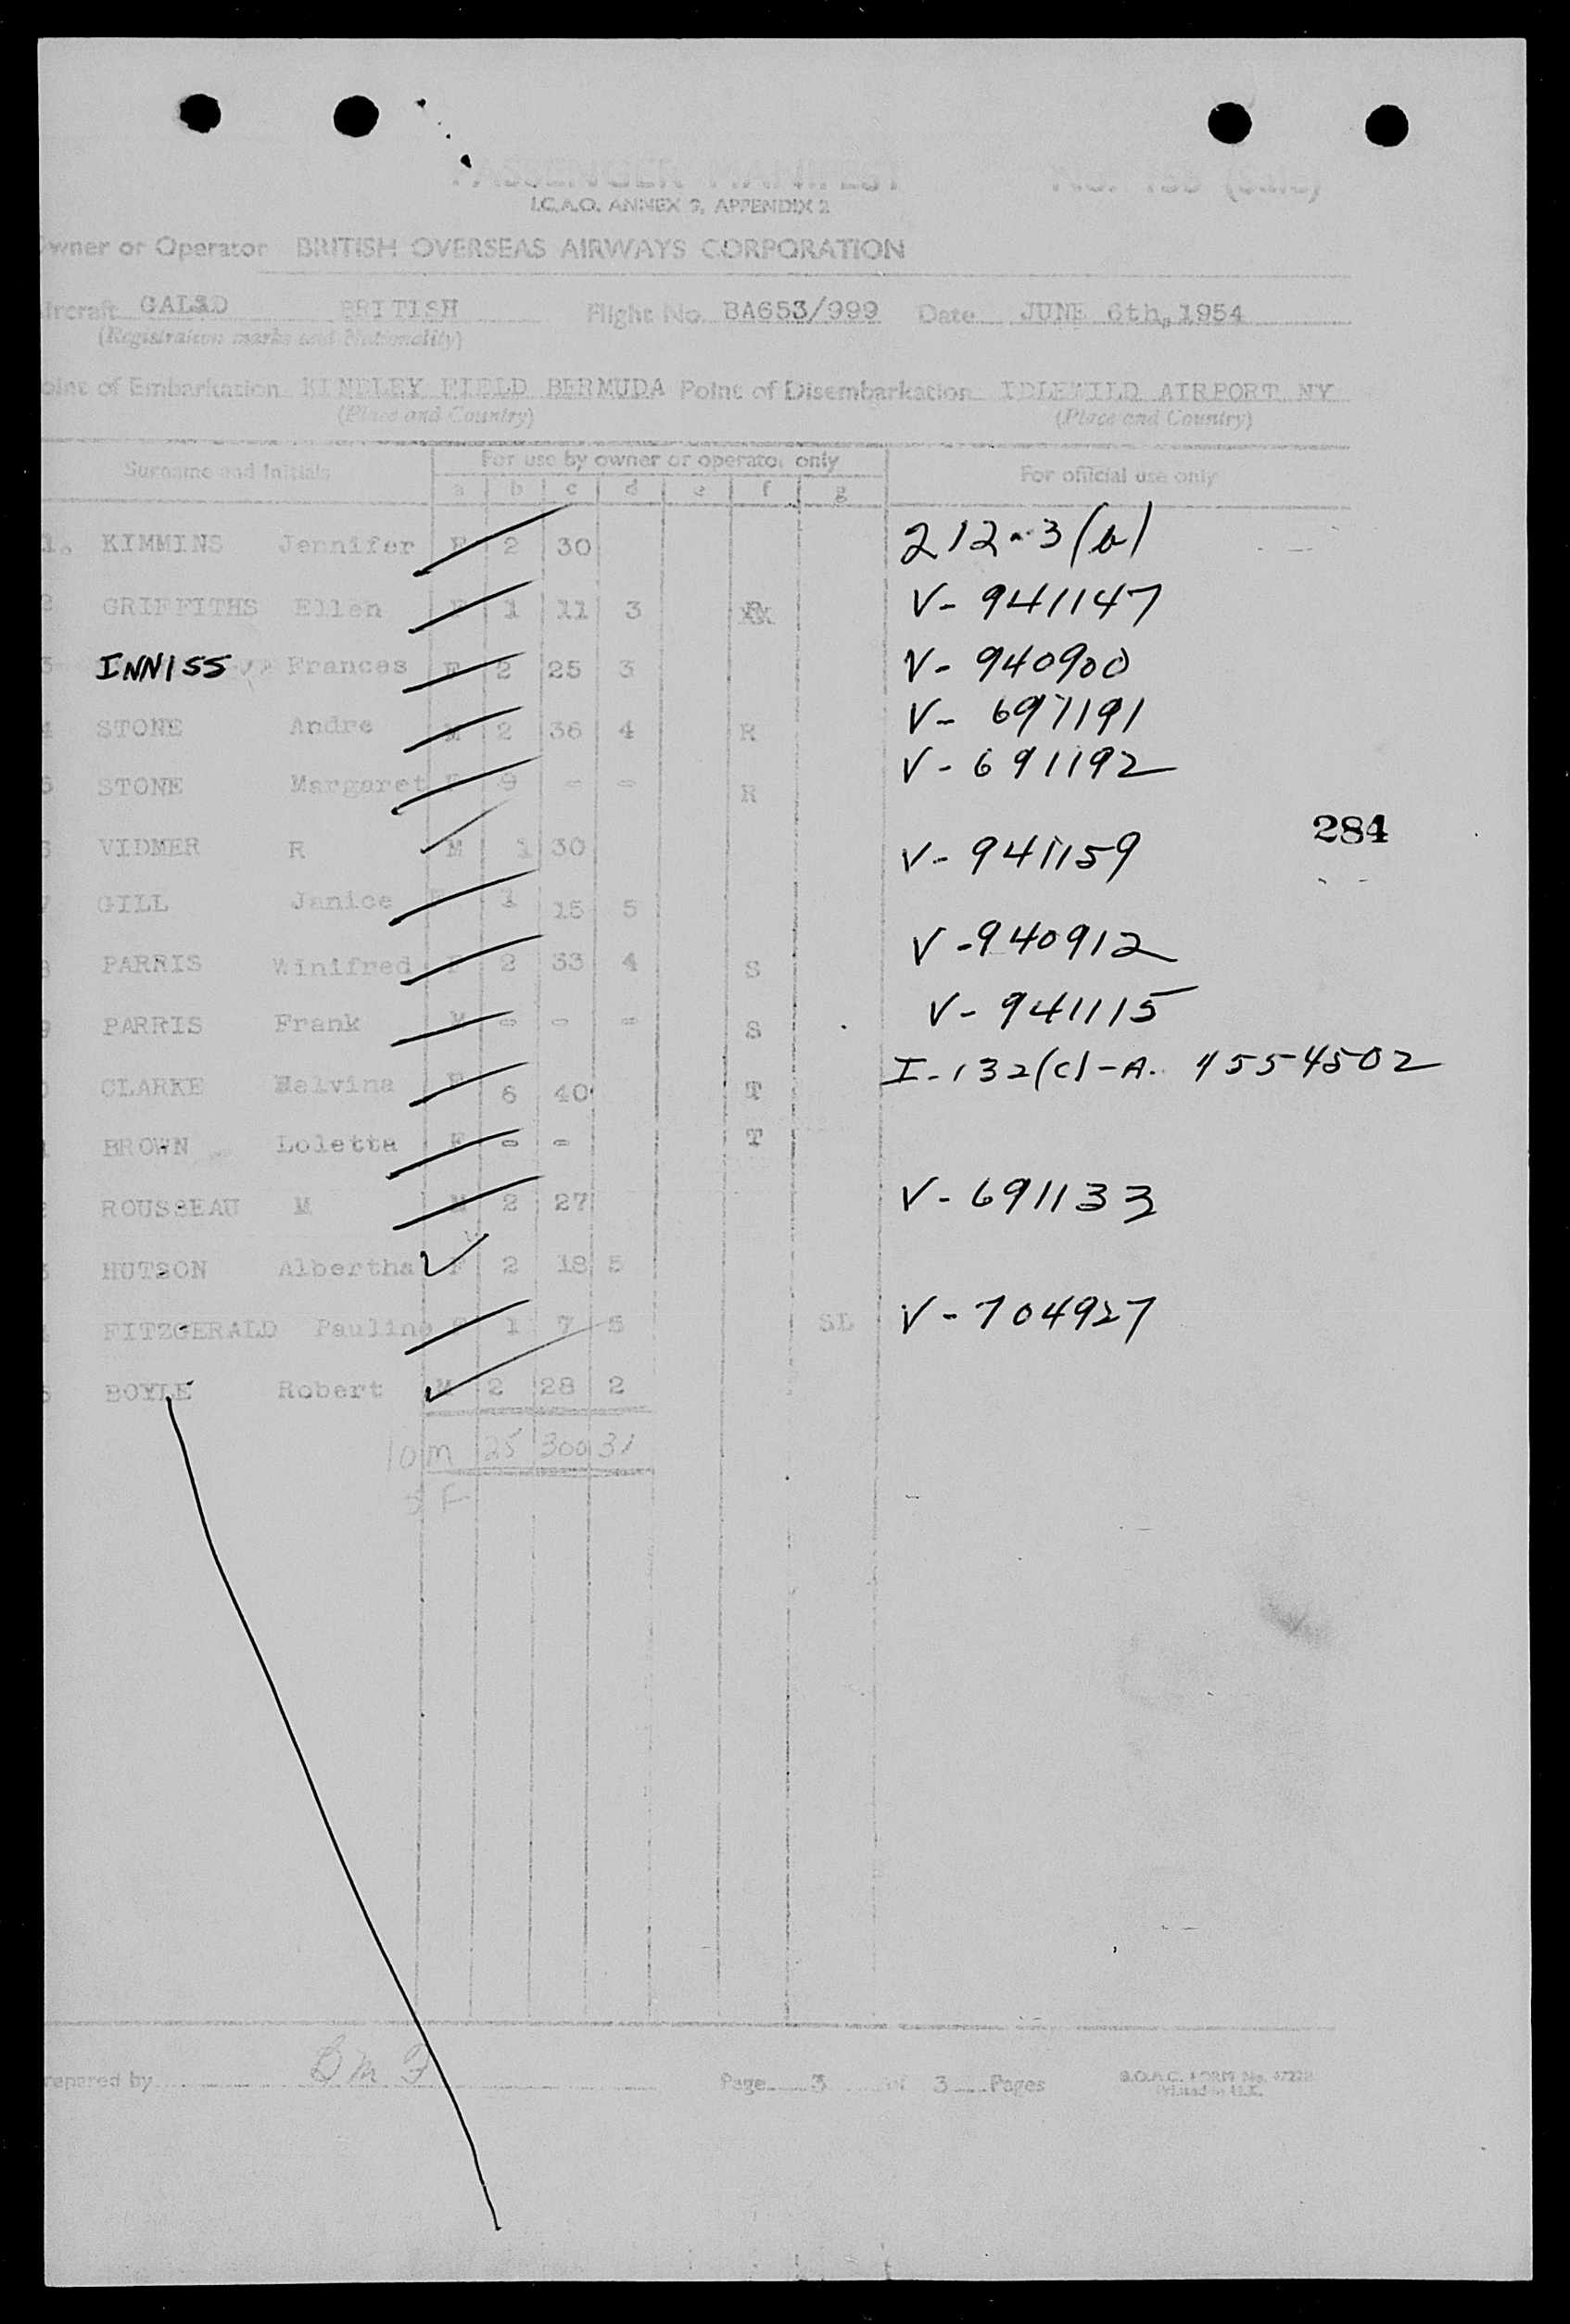 PASSENGER MANIFEST
I.C.A.O. ANNEX 9, APPENDIX 2
Owner or Operator BRITISH OVERSEAS AIRWAYS CORPORATION
ircraft BRITISH Flight No. BA653/999 Date JUNE 6th, 1954
(Registration marks and Nationality)
oint of Embarkation KINDLEY FIELD BERMUDA Point of Disembarkation IDLEWILD AIRPORT NY
(Place and Country) (Place and Country)
Surname and Initials For use by owner or operator only For official use only
a b c d e f g
1. KIMMINS Jennifer F 2 30 212.3(b)
2 GRIFFITHS Ellen F 1 11 3 V- 941147
3 INNISS Frances F 2 25 3 V- 940900
4 STONE Andre M 2 36 4 R V- 691191
5 STONE Margaret F 9 - - R V- 691192
284
VIDMER R M 1 30 V- 941159
7 GILL Janice 1 15 5
PARRIS Winifred F 2 33 4 S V-940912
9 PARRIS Frank M - - - S V- 941115
0 CLARKE Melvina F 6 40 T I-132(c)-A.
1 BROWN Loletta F - - T
ROUSSEAU M M 2 27 V- 691133
HUTSON Albertha F 2 18 5
FITZGERALD Pauline 1 7 5 SL V- 704927
BOYLE Robert M 2 28 2
10 m 25 300 31
5 F
repared by B M F Page 3 of 3 Pages B.O.A.C. FORM No.
Printed in U.K.